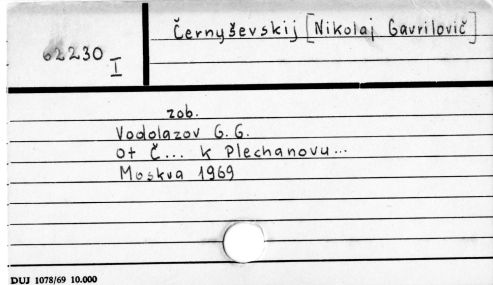 Černyševskij [Nikolaj Gavrilovič]
62230
I
zob.
Vodolazov G.G.
Ot Č... k Plechanovu...
Moskva 1969
DUJ 1078/69 10.000